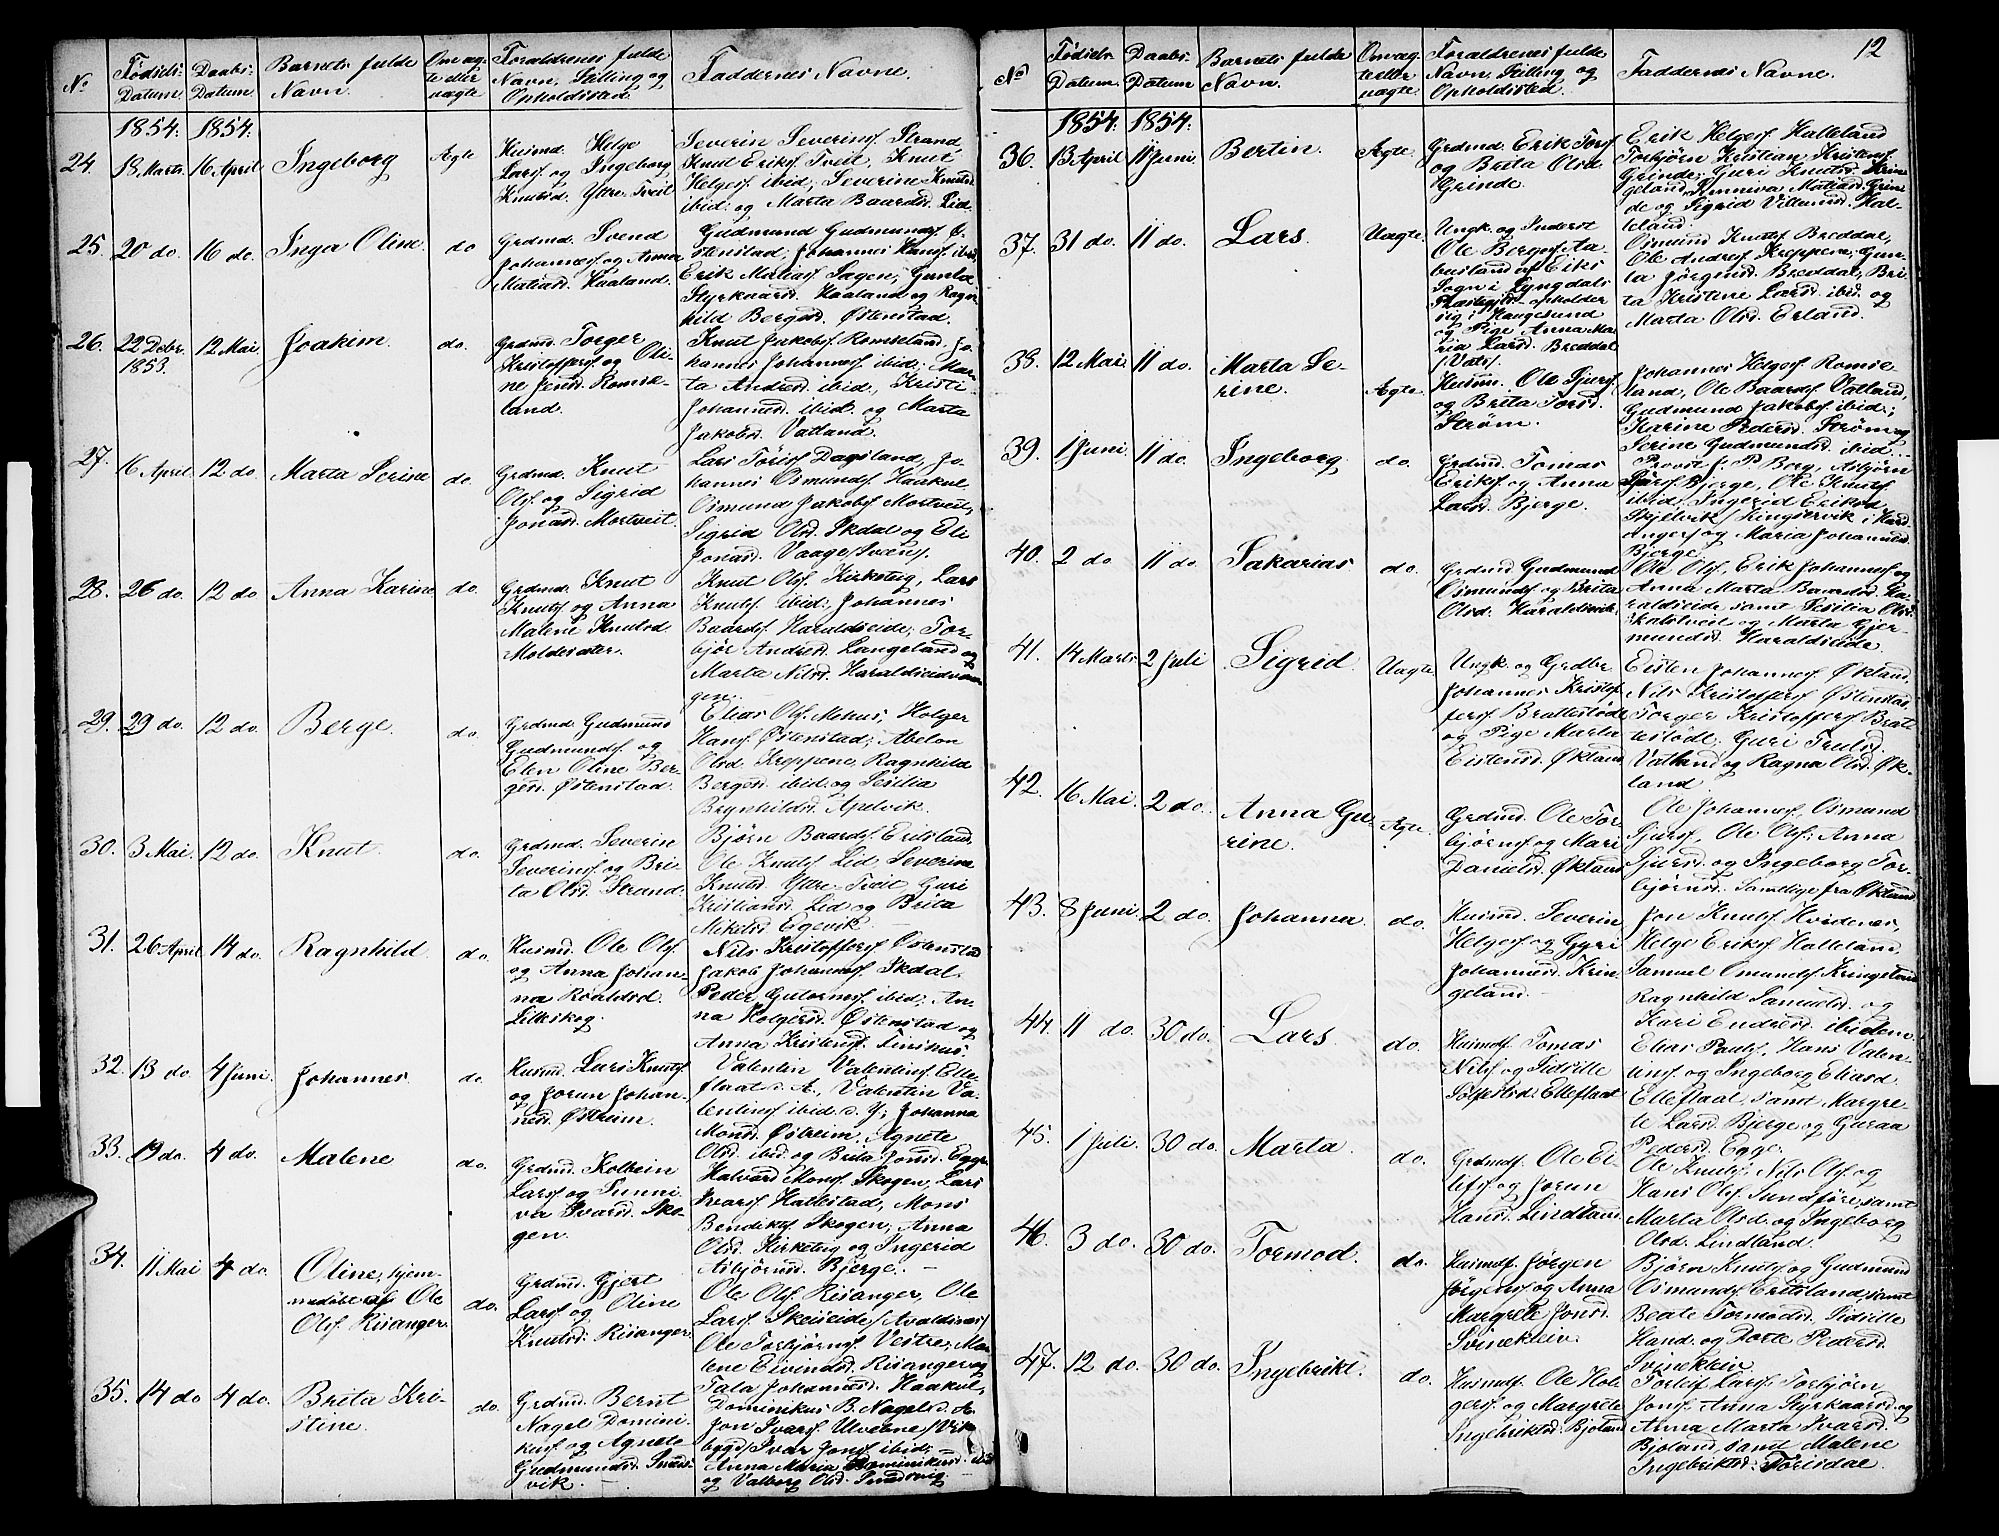 No.
Fødsels-
Datum.
Daabs-
Datum.
Barnets fulde
Navn.
Om æg-
te eller
uægte
Forældrenes fulde
Navn, Stilling og
Opholdssted.
Faddernes Navne.
1854. 1854.
24. 18 Marts 16 April Ingeborg Ægte
Husmd. Helge
Larsf. og Ingeborg
Knutsd. Yttre-Tveit
Severin Severinsf. Strand,
Knut Eriksf. Tveit, Knut
Helgesf. ibid; Severine Knutsd.
ibid. og Marta Baardsd. Lid.
25. 20 do. 16 do. Inga Oline do
Grdmd. Svend
Johannesf. og Anna
Matiasd. Haaland.
Gudmund Gudmundsf. Ø-
stenstad, Johannes Hansf. ibid,
Erik Matiasf. Sagen; Gunla
Styrkaarsd. Haaland og Ragn-
hild Bergesd. Østenstad.
26. 22 Debr. 1853. 12 Mai. Joakim. do.
Grdmd. Torger
Kristoffersf. og Oli-
ne Jensd. Romse-
land.
Knut Jakobsf. Romseland, Jo-
hannes Johannesf. ibid; Mar-
ta Andersd. ibid, Kristi
Johannesd. ibid. og Marta
Jakobsd. Vatland.
27. 16 April 12 do. Marta Serine do.
Grdmd. Knut
Olsf. og Sigrid
Jonasd. Mortveit.
Lars Tørisf. Dagsland, Jo-
hannes Osmundsf. Haakul,
Osmund Jakobsf. Mortveit,
Sigrid Olsd. Skdal og Eli
Jonasd. Vaage/Sveen/.
28. 26 do. 12 do. Anna Karine do.
Grdmd. Knut
Knutsf. og Anna
Malene Knutsd
Moldesæter.
Knut Olsf. Kirketeig, Lars
Knutsf. ibid; Johannes
Baardsf. Haraldseide; Tor-
bjør Andersd. Langeland og
Marta Nilsd. Haraldseidvaa-
gen.
29. 29 do. 12 do. Berge. do.
Grdmd. Gudmund
Gudmundsf. og
Elen Oline Ber-
gesd. Østenstad.
Elias Olsf. Mehus, Holger
Hansf. Østenstad; Abelon
Olsd. Kreppene, Ragnhild
Bergesd. ibid. og Sesilia
Brynhildsd. Apelvik.
30. 3 Mai. 12 do. Knut. do.
Grdmd. Severin
Severinsf. og Bri-
ta Olsd. Strand.
Bjørn Baardsf. Eritsland,
Ole Knutsf. Lid, Severine
Knutsd. Yttre-Tveit, Guri
Kristiansd. Lid og Brita
Mikelsd. Egevik.
31. 26 April 14 do. Ragnhild do.
Husmd. Ole Olsf.
og Anna Johan-
na Roaldsd.
Litleskog.
Nils Kristoffersf. Østenstad
Jakob Johannesf. Skdal.
Peder Gutormsf. ibid; An-
na Holgersd. Østenstad og
Anna Kristensf. Tinihus.
32. 13 do. 4 Juni. Johannes. do.
Husmd. Lars Knutsf.
og Jorun Johan-
nesd. Østreim.
Valentin Valentinsf. Elle-
flaat d. A., Valentin Va-
lentinsf. ibid. d. Y; Johanna
Monsd. Østreim, Agnete
Olsd. ibid. og Brita Jonsd. Egge.
33. 19 do. 4 do. Malene do.
Grdmd. Kolbein
Larsf. og Sunni-
va Ivarsd. Sko-
gen.
Halvard Monsf. Skogen, Lars
Ivarsf. Hallestad, Mons
Bendiktsf. Skogen; Anna
Olsd. Kirketeig og Ingerid
Asbjørnsd. Bjerge.
34. 11 Mai 4 do. Oline, hjem-
medøbt af Ole
Olsf. Risanger. do.
Grdmd. Gjert
Larsf. og Oline
Knutsd. Risanger.
Ole Olsf. Risanger, Ole
Larsf. Skeiseide/Avaldsnes/
Ole Torbjørnsf. Vestre; Ma-
lene Eivindsd. Risanger og
Tala Johannesd. Haakul,
35. 14 do 4 do. Brita Kri-
stine. do.
Grdmd. Bernt
Nagel Domini-
kusf. og Agnete
Gudmundsd. Snørs-
vik.
Dominikus B. Nagel d. A.
Jon Ivarsf. Ulvene/Vik-
bygd/Ivar Jonsf. ibid;
Anna Maria Dominikusd. ibid
og Valborg Olsd. Smørsvig.
12
No
Fødsels-
Datum.
Daabs-
Datum
Barnets fulde
Navn.
Om æg-
te eller
uægte.
Forældrenes fulde
Navn, Stilling og
Opholdssted.
Faddernes Navne.
1854. 1854.
36. 13 April 11 Juni. Bertin. Ægte.
Grdmd. Erik Torsf.
og Brita Olsd.
Grinde.
Erik Helgesf. Halleland
Torbjørn Kristian Kristensf.
Grinde; Guri Knutsd. Krin-
geland, Sunneva Matiasd. Grin-
de og Sigrid Villumsd. Hal-
leland.
37. 31 do. 11 do. Lars. Uægte.
Ungk. og Inderst
Ole Bergesf. Aa-
busland af Eiks
Sogn i Lyngdals
Præstegjd. opholder
sig i Haugesund
og Pige Anna Ma-
ria Larsd. Breddal
/Vats/.
Osmund Knutsf. Breddal,
Ole Andersf. Kreppene; Gun-
la Jørgensd. Breddal, Bri-
ta Kristine Larsd. ibid. og
Marta Olsd. Erland.
38. 12 Mai. 11 do. Marta Se-
rine. Ægte.
Husm. Ole Sjursf.
og Brita Torsd.
Strøm.
Johannes Helgesf. Romse-
land, Ole Baardsf. Vatland,
Gudmund Jakobsf. ibid;
Karine Pedersd. Strøm og
Serine Gudmundsd. ibid.
39. 1 Juni. 11 do. Ingeborg. do.
Grdmd. Tomas
Eriksf. og Anna
Larsd. Bjerge.
Provst J. P. Berg, Asbjørn
Sjursf. Bjerge, Ole Knutsf.
ibid; Ingerid Eriksd.
Skjelvik/Kingservik i Hard-
anger/ og Maria Johannesd.
Bjerge.
40. 2 do 11 do. Sakarias do.
Grdmd Gudmund
Osmundsf. og Brita
Olsd. Haraldseide.
Ole Olsf. Erik Johannesf. og
Anna Marta Baardsd. Ha-
raldseide samt Sesilia Olsd.
Skatetveit og Marta Gjer-
mundsd. Haraldseide.
41. 14 Marts 2 Juli Sigrid. Uægte.
Ungk. og Grdbr
Johannes Kristof-
fersf. Brattestøde
og Pige Marta
Eistensd. Økland
Eisten Johannesf. Økland,
Nils Kristoffersf. Østenstad
Torger Kristoffersf. Brat-
testøde; Guri Truls.
Vatland og Ragna Olsd. Øk-
land.
42. 16 Mai. 2 do. Anna Gu-
rine. Ægte.
Grdmd. Ole Tor-
bjørnsf. og Mari
Danielsd. Økland
Ole Johannesf, Osmund
Sjursf., Ole Olsf; Anna
Sjursd. og Ingeborg Tor-
bjørnsd. Samtlige fra Økland
43. 8 Juni. 2 do. Johanna. do.
Husmd. Severin
Helgesf. og Gyri
Johannesd. Krin-
geland.
Jon Knutsf. Hvidenes,
Helge Eriksf. Halleland,
Samuel Omundsf. Kringeland,
Ragnhild Samuelsd. og
Kari Endresd. ibidem.
44. 11 do. 30 do. Lars. do.
Husmdf. Tomas
Nilsf. og Sidsille
Sølfestsd. Elleflaat
Elias Paulsf., Hans Valen-
tinsf. og Ingeborg Eliasd.
Elleflaat samt Margre-
te Larsd. Bjerge og Guraa
Pedersd. Egge.
45. 1 Juli. 30 do. Marta. do.
Grdmdf. Ole Ei-
lefsf. og Jorun
Hansd. Lindland.
Ole Knutsf., Nils Olsf. og
Hans Olsf. Sundføre, samt
Marta Olsd. og Ingeborg
Olsd. Lindland.
46. 3 do. 30 do. Tormod. do.
Husmdf. Jørgen
Jørgensf. og Anna
Margrete Jonsd.
Svinekleiv.
Bjørn Knutsf. og Gudmund
Osmundsf. Eritsland, samt
Beate Tormodsd, Sidsille
Hansd. og Dorte Pedersd.
Svinekleiv.
47. 12 do. 30 do. Ingebrikt. do.
Husmdf. Ole Hol-
gersf. og Margrete
Ingebriktsd. Bjoland
Torleif Larsf. Torbjørn
Jonsf. Anna Styrkaarsd. og
Anna Marta Ivarsd.
Bjoland, samt Malene
Ingebriktsd. Tørisdal.